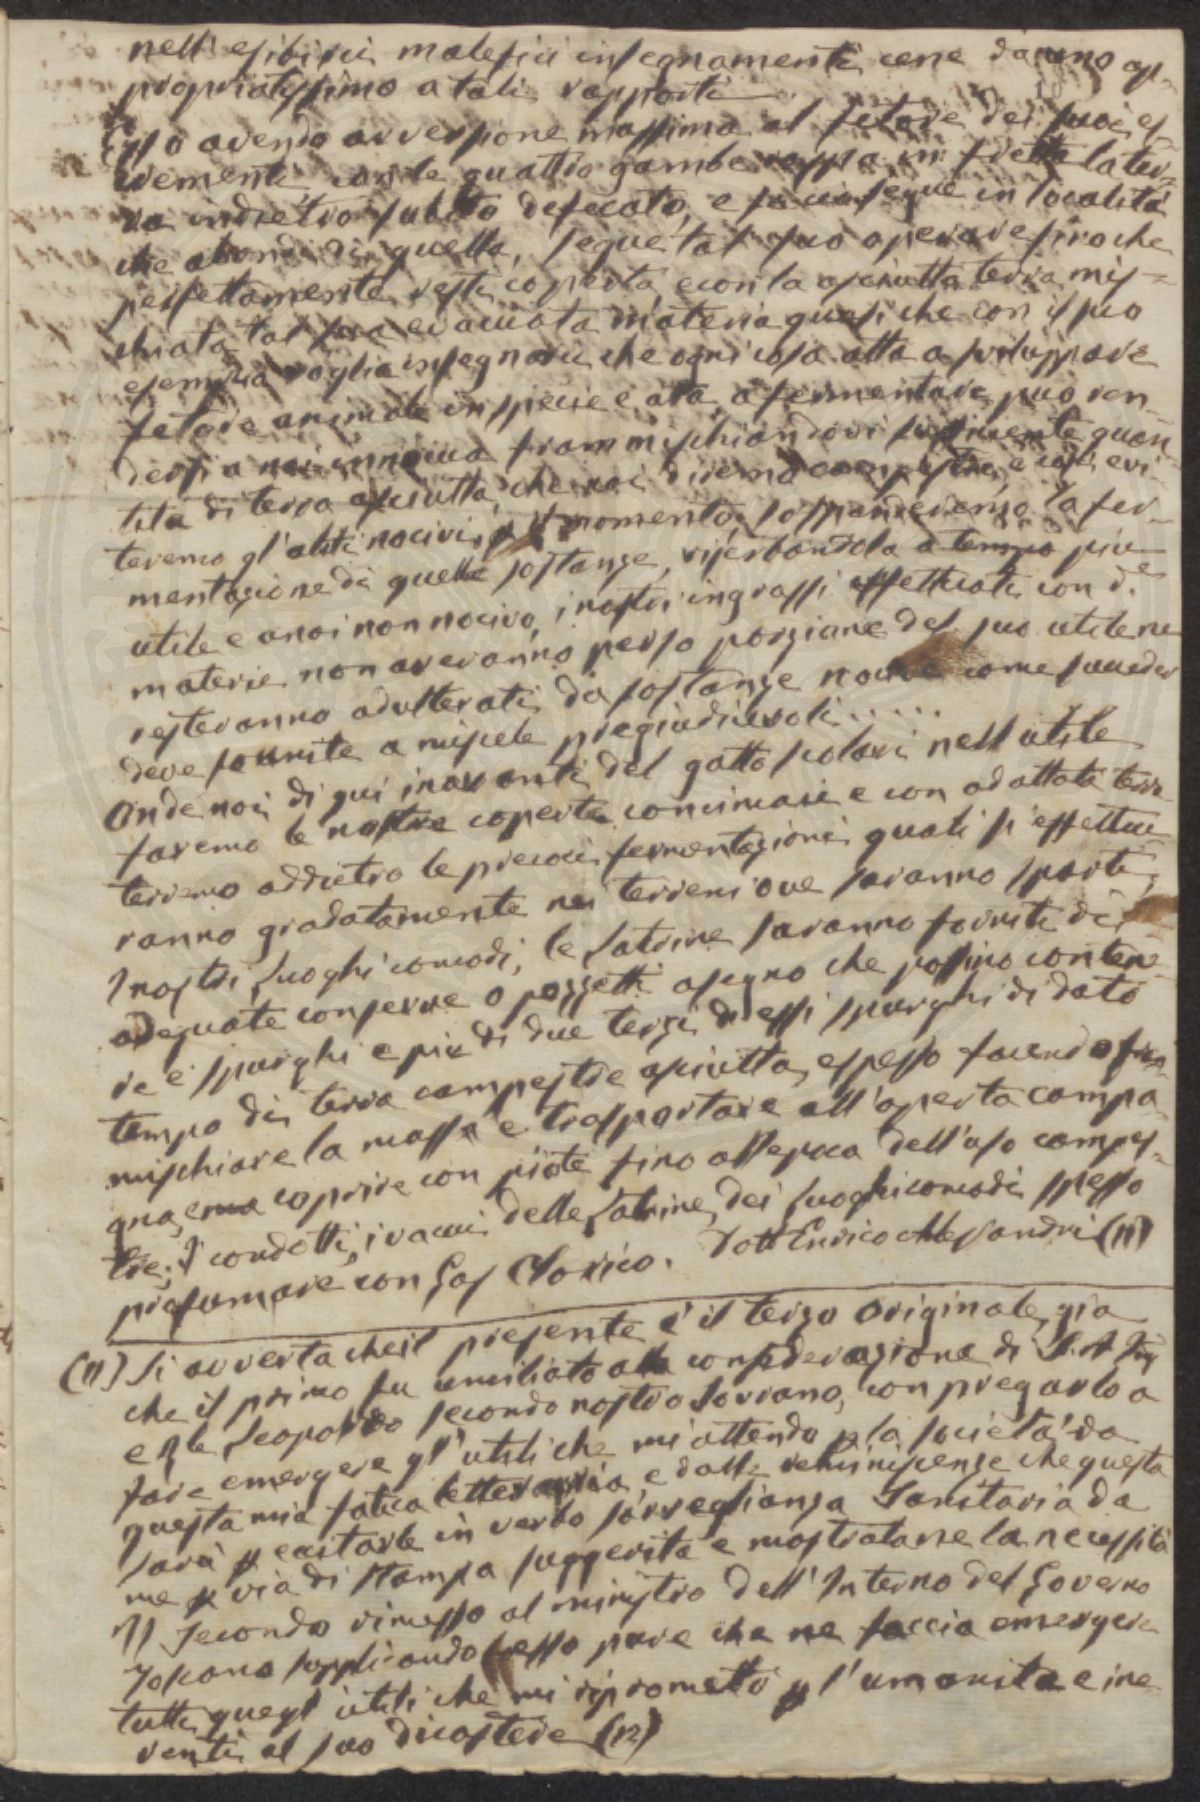 nell'esibirci malefici insegnamenti cene dà uno ap-
propriatissimo a tali rapporti
Esso avendo avversione massima al fetore dei suoi es-
crementi con le quattro gambe raspa in fretta la ter-
ra indietro subito defecato, e se ciò segue in località
che abondi di quella, segue tal suo operare finoche
perfettamente resti coperta, e con la asciutta terra mis-
chiata tal sua evacuata materia quasi che con il suo
esempio voglia insegnarci che ogni cosa atta a sviluppare
fetore animale in specie e ata a fermentare può ren-
dersi a noi innocua frammischiandovi sufficiente quan-
tità di terra asciutta, che noi diremo campestre, e così evi-
teremo gl'aliti nocivi, p il momento sospenderemo la fer-
mentazione di quelle sostanze, riserbandola a tempo più
utile e a noi non nocivo, i nostri ingrassi effettuati con de
materie non averanno perso porzione del suo utile ne
resteranno adulterati da sostanze nocive come succeder
deve se unite a miscele pregiudicevoli.....
Onde noi di qui inavanti del gatto scolari nell'utile
faremo le nostre coperte concimaie e con adattata terra
terremo addietro le precoci fermentazioni quali si effettue-
ranno gradatamente nei terreni ove saranno sparti,
I nostri Luoghi comodi, le Latrine saranno forniti di
adequate conserve o pozzetti asegno che possino contene-
re e' spurghi e più di due terzi di essi spurghi di dato
tempo di terra campestre asciutta, espesso facendo fram-
mischiare la massa e trasportare all'aperta campa-
gna, coprire con piote fino all'epoca dell'uso campes-
tre, I condotti, i vacui delle Latrine, dei Luoghi comodi spesso
profumare con Gas Clorico. Dott Enrico Alessandri (11)
(11) Si avverta che il presente è il terzo Originale, già
che il primo fu umiliato alla considerazione di S. A. Imp
e Rle Leopoldo secondo nostro Sovrano, con pregarlo a
fare emergere gl'utili che mi attendo p la società da
questa mia fatica letteraria, e dalle reminiscenze che questa
sarà p eccitarle in verbo sorveglianza Sanitaria da
me p via di stampa suggerita e mostratane la necessità
Il Secondo rimesso al ministro dell'Interno del Governo
Toscano supplicando esso pure che ne faccia emergere
tutti quegl'utili che mi riprometto p l'umanità e ine-
renti al suo dicastere (12)